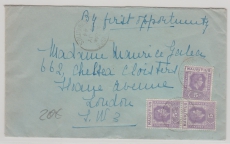 By first opportunity
Madame Maurice
662, Chelsea Cloisters
Sloane Avenue
London
S.W.3
206